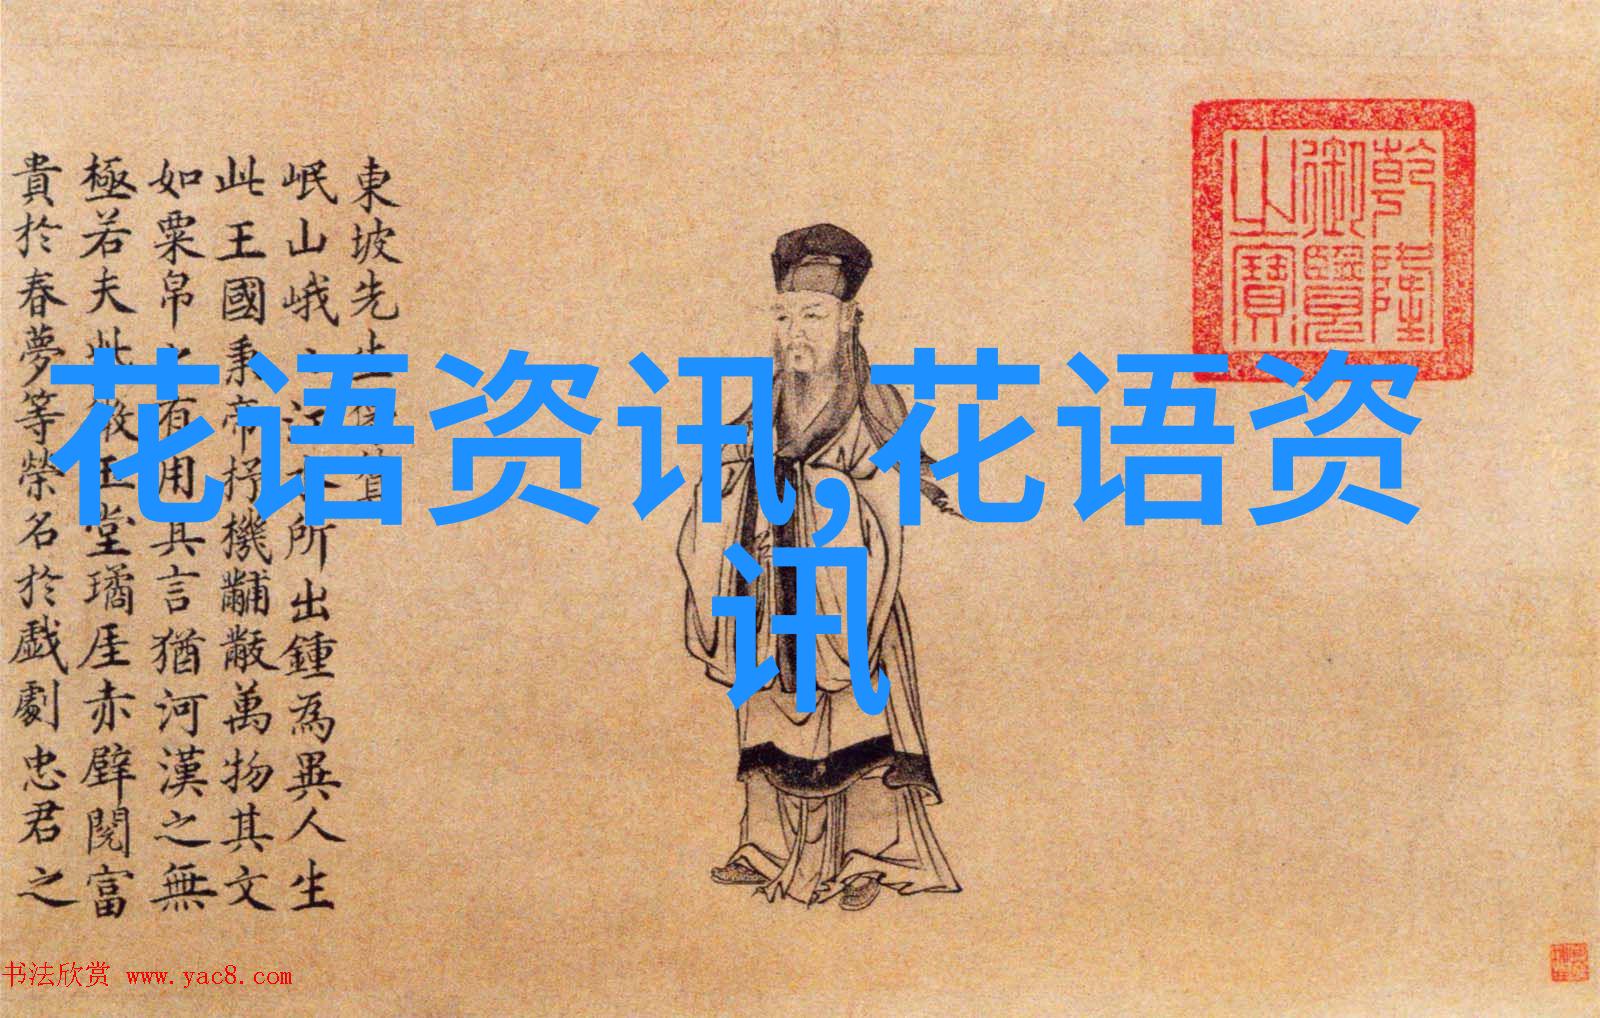 東坡先生
岷山峨江所出鍾為異人生
此王國秉帝杼機黼黻萬物其文
如粟帛之有用其言猶河漢之無
極若夫堂璚厓赤壁閱富
貴於春夢等榮名於戲劇忠君之
乾隆
御覽
之寶
花语资讯,花语资
讯
书法欣赏 www.yac8.com